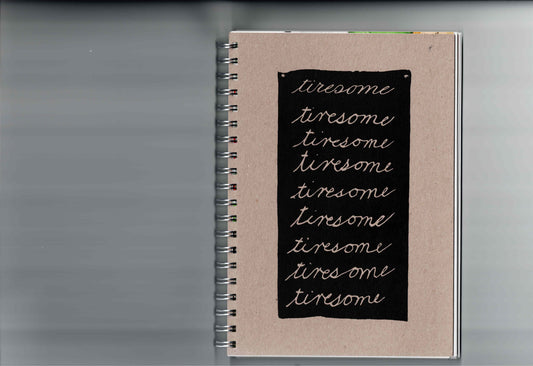 tiresome
tiresome
tiresome
tiresome
tiresome
tiresome
tiresome
tiresome
tiresome